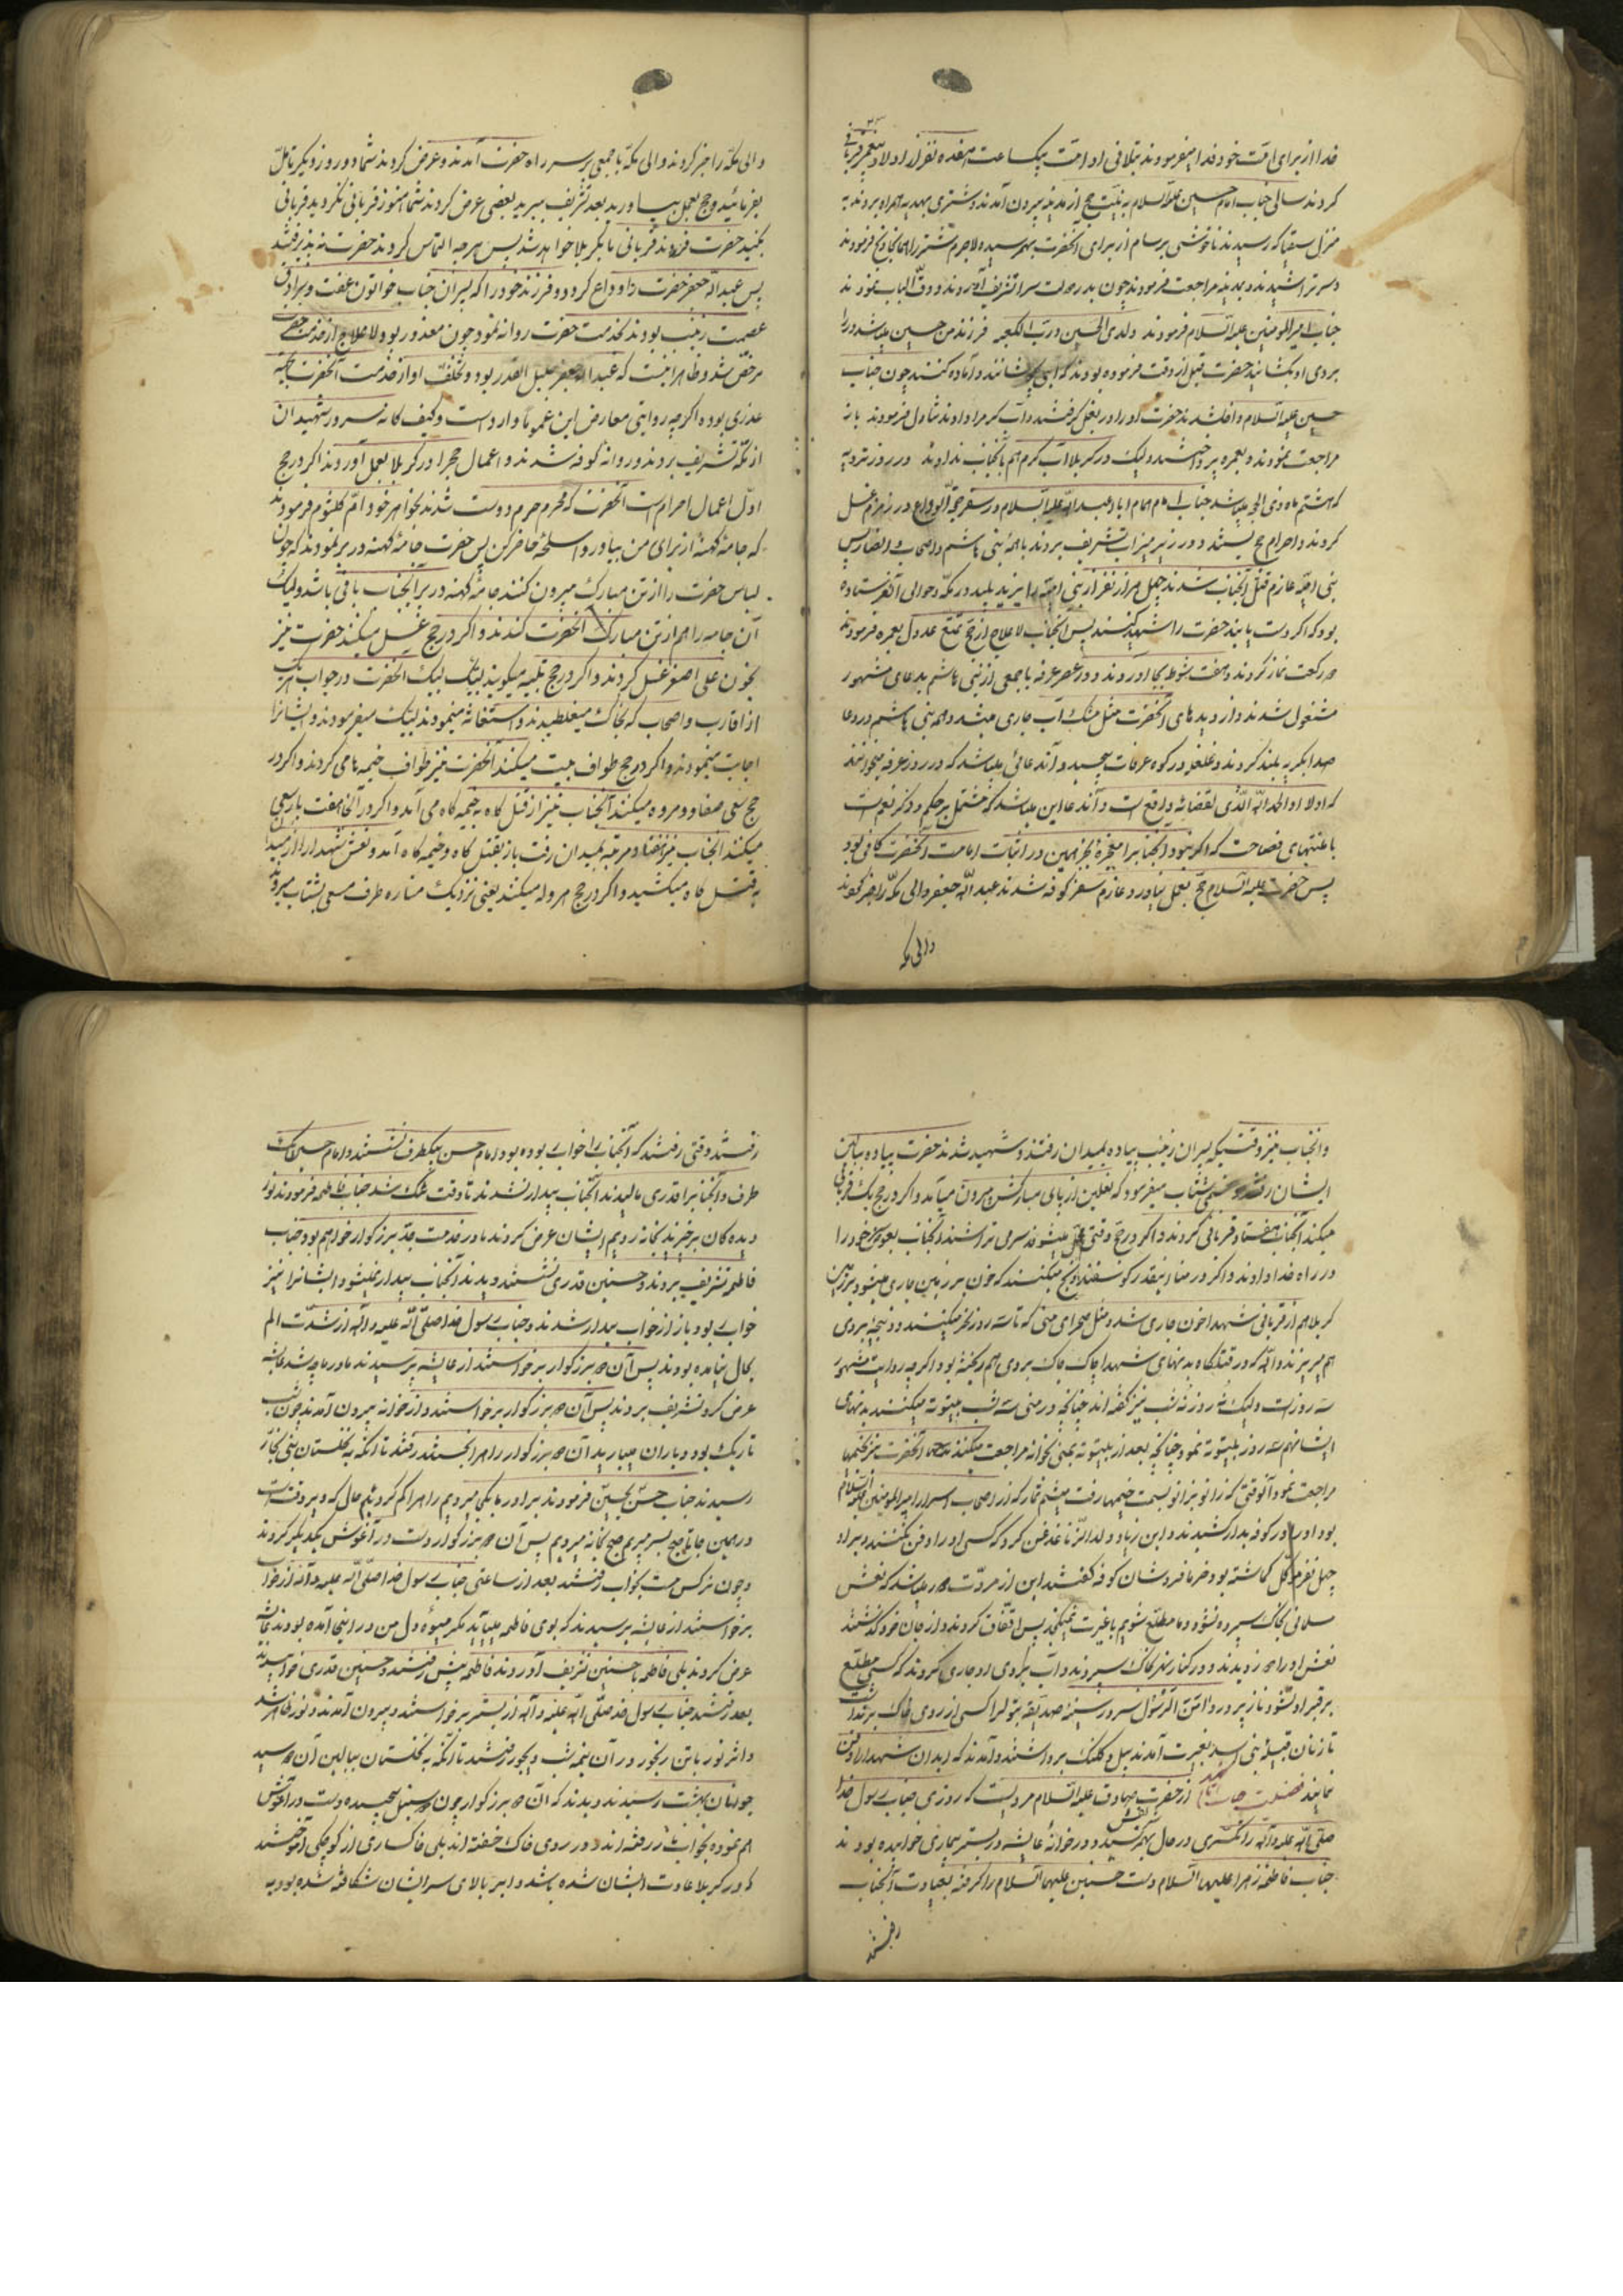 فدا از برای امت خود فدا میفرمودند بتلافی او امت یکساعت هفده نفر از اولاد پیغمبر قربانی
کردند سالی جناب امام حسین علیه السلام به نیت حج از مدینه بیرون آمدند و شتری بهدیه همراه بردند به
منزل سقیا که رسیدند ناخوشی برسام از برای آنحضرت بهم رسید و لاجرم شتر را همانجا ذبح فرمودند
و سر تراشیدند و بمدینه مراجعت فرمودند چون بدر دولت سرا تشریف آوردند و دق الباب نمودند
جناب امیرالمومنین علیه السلام فرمودند ولدی الحسین و رب الکعبه فرزند من حسین میباشد در را
بروی او بگشائید حضرت قبل از وقت فرموده بودند که آبی و آماده کنند چون جناب
حسین علیه السلام داخل شدند حضرت او را در بغل گرفتند و آب گرم را دادند تناول فرمودند باز
مراجعت نمودند و بعمره پرداختند ولیک در کربلا آب گرم هم بآنجناب ندادند در روز ترویه
که هشتم ماه ذی الحجه میباشد جناب امام همام ابا عبدالله علیه السلام در سفر حجة الوداع در زمزم غسل
کردند و احرام حج بستند و در زیر میزاب تشریف بردند با همه بنی هاشم و اصحاب و انصار پس
بنی امیه عازم قتل آنجناب شدند چهل هزار نفر از بنی امیه را یزید پلید در مکه و حوالی آن فرستاده
بود که اگر دست یابند حضرت را شهید کنند پس آنجناب لاعلاج از حج تمتع عدول بعمره فرمودند
دو رکعت نماز کردند و هفت شوط بجا آوردند و در عصر عرفه با جمعی از بنی هاشم بدعای مشهور
مشغول شدند و از دیده های آنحضرت مثل مشک آب جاری میشد و همه بنی هاشم در دعا
صدا بگریه بلند کردند و غلغله در کوه عرفات پیچید و آن دعائی میباشد که در روز عرفه میخوانند
که اولا او الحمدلله الذی لقضائه دافع است و آن دعا این میباشد که مشتمل بر حکم و ذکر نعم است
با منتهای فصاحت که اگر نبود آنجناب را معجزه بجز همین در اثبات امامت آنحضرت کافی بود
پس حضرت علیه السلام حج بعمل نیاورد و عازم سفر کوفه شدند عبدالله جعفر والی مکه را خبر کردند
والی مکه
والی مکه را خبر کردند والی مکه با جمعی بر سر راه حضرت آمدند و عرض کردند شما دو روز دیگر تأمل
بفرمائید و حج بعمل بیاورید بعد تشریف ببرید بعضی عرض کردند شما هنوز قربانی نکردید قربانی
بکنید حضرت فرمودند قربانی ما بکربلا خواهد شد پس هرچه التماس کردند حضرت نپذیرفتند
پس عبدالله جعفر حضرت را وداع کرد و دو فرزند خود را که پسران جناب خواتون عفت و سرادق
عصمت زینب بودند بخدمت حضرت روانه نمود چون معذور بود و لاعلاج از خدمت حضرت
مرخص شد و ظاهر اینست که عبدالله جعفر جلیل القدر بود و تخلف او از خدمت آنحضرت بجهة
عذری بوده اگرچه روایتی معارض این عموما وارد است و کیف کان سرور شهیدان
از مکه تشریف بردند و روانه کوفه شدند و اعمال حج را در کربلا بعمل آوردند اگر در حج
اول اعمال احرام است آنحضرت که محرم حرم دوست شدند بخواهر خود ام کلثوم فرمودند
که جامه کهنه از برای من بیاور و اسلحه حاضر کن پس حضرت جامه کهنه در بر نمودند که چون
لباس حضرت را از تن مبارک بیرون کنند جامه کهنه در بر آنجناب باقی باشد ولیک
آن جامه را هم از تن مبارک آنحضرت کندند و اگر در حج غسل میکنند حضرت نیز
بخون علی اصغر غسل کردند و اگر در حج تلبیه میگویند لبیک لبیک آنحضرت در جواب هر یک
از اقارب و اصحاب که بخاک میغلطیدند و استغاثه مینمودند لبیک میفرمودند و ایشانرا
اجابت مینمودند و اگر در حج طواف بیت میکنند آنحضرت نیز طواف خیمه ها می کردند و اگر در
حج سعی صفا و مروه میکنند آنجناب نیز از قتل گاه به خیمه گاه می آمد و اگر در آنجا هفت بار سعی
میکنند آنجناب نیز هفتاد مرتبه بمیدان رفت باز بقتل گاه و خیمه گاه آمد و نعش شهدا را از میدان
به قتل گاه میکشید و اگر در حج هروله میکنند یعنی نزدیک مناره طرف مسعی بشتاب میروند
و آنجناب نیز وقتیکه پسران زینب پیاده بمیدان رفتند و شهید شدند حضرت پیاده ببالین
ایشان رفته و بشتاب میفرمود که نعلین از پای مبارکش بیرون میآید و اگر در حج یک قربانی
میکنند آنجناب هفتاد قربانی کردند و اگر در حج وقتی محل میشوند سر می تراشند آنجناب بعوض سر خود را
در راه خدا دادند و اگر در منا اینقدر گوسفند ذبح میکنند که خون بر زمین جاری میشود بر زمین
کربلا هم از قربانی شهدا خون جاری شد و مثل صحرای منی که تا سه روز نحر میکنند و ذبیحه بروی
هم میریزند والله که در قتلگاه بدنهای شهدا چاک چاک بروی هم ریخته بود اگرچه روایت مشهور
سه روز است ولیک نه روز نه شب نیز گفته اند چنانچه در منی سه شب بیتوته میکنند بدنهای
ایشانهم سه روز بیتوته نمود چنانچه بعد از بیتوته بمنی بخانه مراجعت میکنند آنحضرت نیز بخیمها
مراجعت نمود آنوقتی که زانو بزانو بسمت خیمها رفت میثم تمار که از اصحاب اسرار امیرالمومنین علیه السلام
بود او را در کوفه بدار کشیدند و ابن زیاد ولدالزنا غدغن کرد که کسی او را دفن نکند و بر او
چهل نفر موکل گماشته بود خرما فروشان کوفه گفتند این از مروت دور میباشد که نعش
مسلمانی بخاک سپرده نشود و ما مطلع شویم با غیرت نمیگنجد پس اتفاق کردند و از جان خود گذشتند
نعش او را دزدیدند و در کنار نهر بخاک سپردند و آب بروی او جاری کردند که کسی مطلع
بر قبر او نشود ناز پرورد دامن الرسول سرور سینه صدیقه بتول را کسی از روی خاک برنداشت
تا زنان قبیله بنی اسد بغیرت آمدند بیل و کلنگ برداشتند و آمدند که ابدان شهدا را دفن
نمایند فضیلت جناب از حضرت صادق علیه السلام مرویست که روزی جناب رسول خدا
صلی الله علیه وآله را کسری در حال بهم رسید و در خانه عایشه در بستر بیماری خوابیده بودند
جناب فاطمه زهرا علیها السلام دست حسنین علیهما السلام را گرفته بعیادت آنجناب
رفتند
رفتند وقتی رفتند که آنجناب را خواب ربوده بود امام حسن یکطرف نشستند و امام حسین یک
طرف و آنجناب را قدری مالیدند آنجناب بیدار نشدند تا وقت تنگ شد جناب فاطمه فرمودند نور
دیدگان برخیزید بخانه رویم ایشان عرض کردند ما در خدمت جد بزرگوار خواهیم بود جناب
فاطمه تشریف بردند و حسنین قدری نشستند دیدند آنجناب بیدار نمیشود ایشانرا نیز
خواب ربود باز از خواب بیدار شدند و جناب رسول خدا صلی الله علیه وآله از شدت الم
بحال نیامده بودند پس آن دو بزرگوار برخواستند از عایشه پرسیدند مادر ما چه شد عایشه
عرض کرد تشریف بردند پس آن دو بزرگوار برخواستند و از خانه بیرون آمدند چون شب
تاریک بود و باران میبارید آن دو بزرگوار راه را نجستند رفتند تا آنکه به نخلستان بنی نجار
رسیدند جناب حسن بحسین فرمودند برادر ما بکجا میرویم راه را گم کردیم حال که دیر وقت است
در همین جا تا صبح بسر بریم صبح بخانه میرویم پس آن دو بزرگوار دست در آغوش یکدیگر کردند
و چون نرگس مست بخواب رفتند بعد از ساعتی جناب رسول خدا صلی الله علیه وآله از خواب
برخواستند از عایشه پرسیدند که بوی فاطمه میآید مگر میوه دل من در اینجا آمده بودند عایشه
عرض کردند بلی فاطمه با حسنین تشریف آوردند فاطمه پیش رفتند و حسنین قدری خوابیدند
بعد رفتند جناب رسول خدا صلی الله علیه وآله از بستر برخواستند و بیرون آمدند و نور ظاهر شد
و اثر نور با تن رنجور در آن نیمه شب دیجور رفتند تا آنکه به نخلستان ببالین آن دو سید
جوانان بهشت رسیدند دیدند که آن دو بزرگوار چون دو سنبل پیچیده دست در آغوش
هم نموده بخواب ناز رفته اند و در روی خاک خفته اند بلی خاکساری از کوچکی آموختند
که در کربلا عادت ایشان شده باشد و ابر بالای سر ایشان شکافته شده بود به